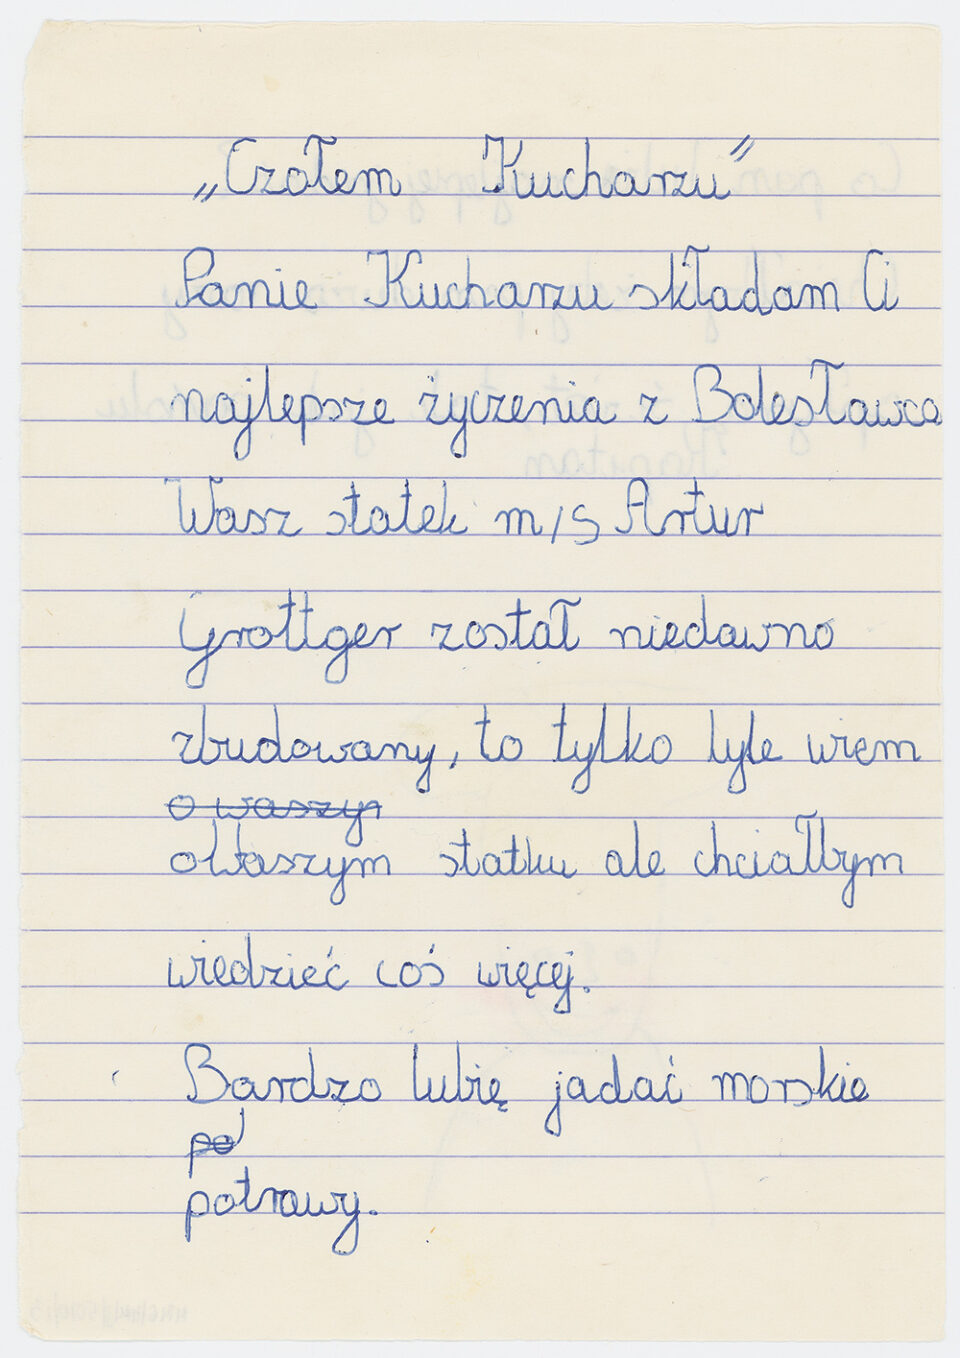 „Czołem Kucharzu”
Panie Kucharzu składam Ci
najlepsze życzenia z Bolesławca
Wasz statek m/s Artur
Grottger został niedawno
zbudowany, to tylko tyle wiem
o waszym
o Waszym statku ale chciałbym
wiedzieć coś więcej.
Bardzo lubię jadać morskie
po
potrawy.